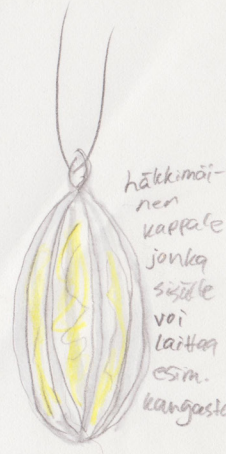 häkkimäi-
nen
kappale
jonka
sisälle
voi
laittaa
esim.
kangasta